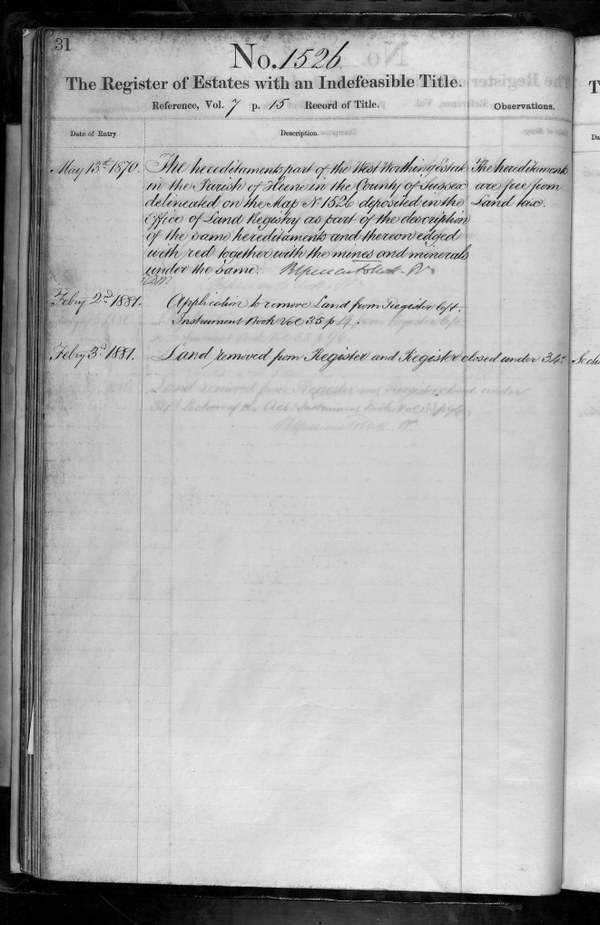 31
No. 1526
The Register of Estates with an Indefeasible Title.
Reference, Vol. 7 p. 15 Record of Title.
Observations.
Date of Entry.
Description.
May 13th 1870.
The hereditaments part of the West Worthing Estate
in the Parish of Heene in the County of Sussex
delineated on the Map No 1526 deposited in the
Office of Land Registry as part of the description
of the same hereditaments and thereon edged
with red together with the mines and minerals
under the same.
The hereditaments
are free from
Land tax.
Feby 2nd 1881.
Application to remove Land from Register left.
Instrument Book Vol 35 p 4.
Feby 3rd 1881.
Land removed from Register and Register closed under 34th